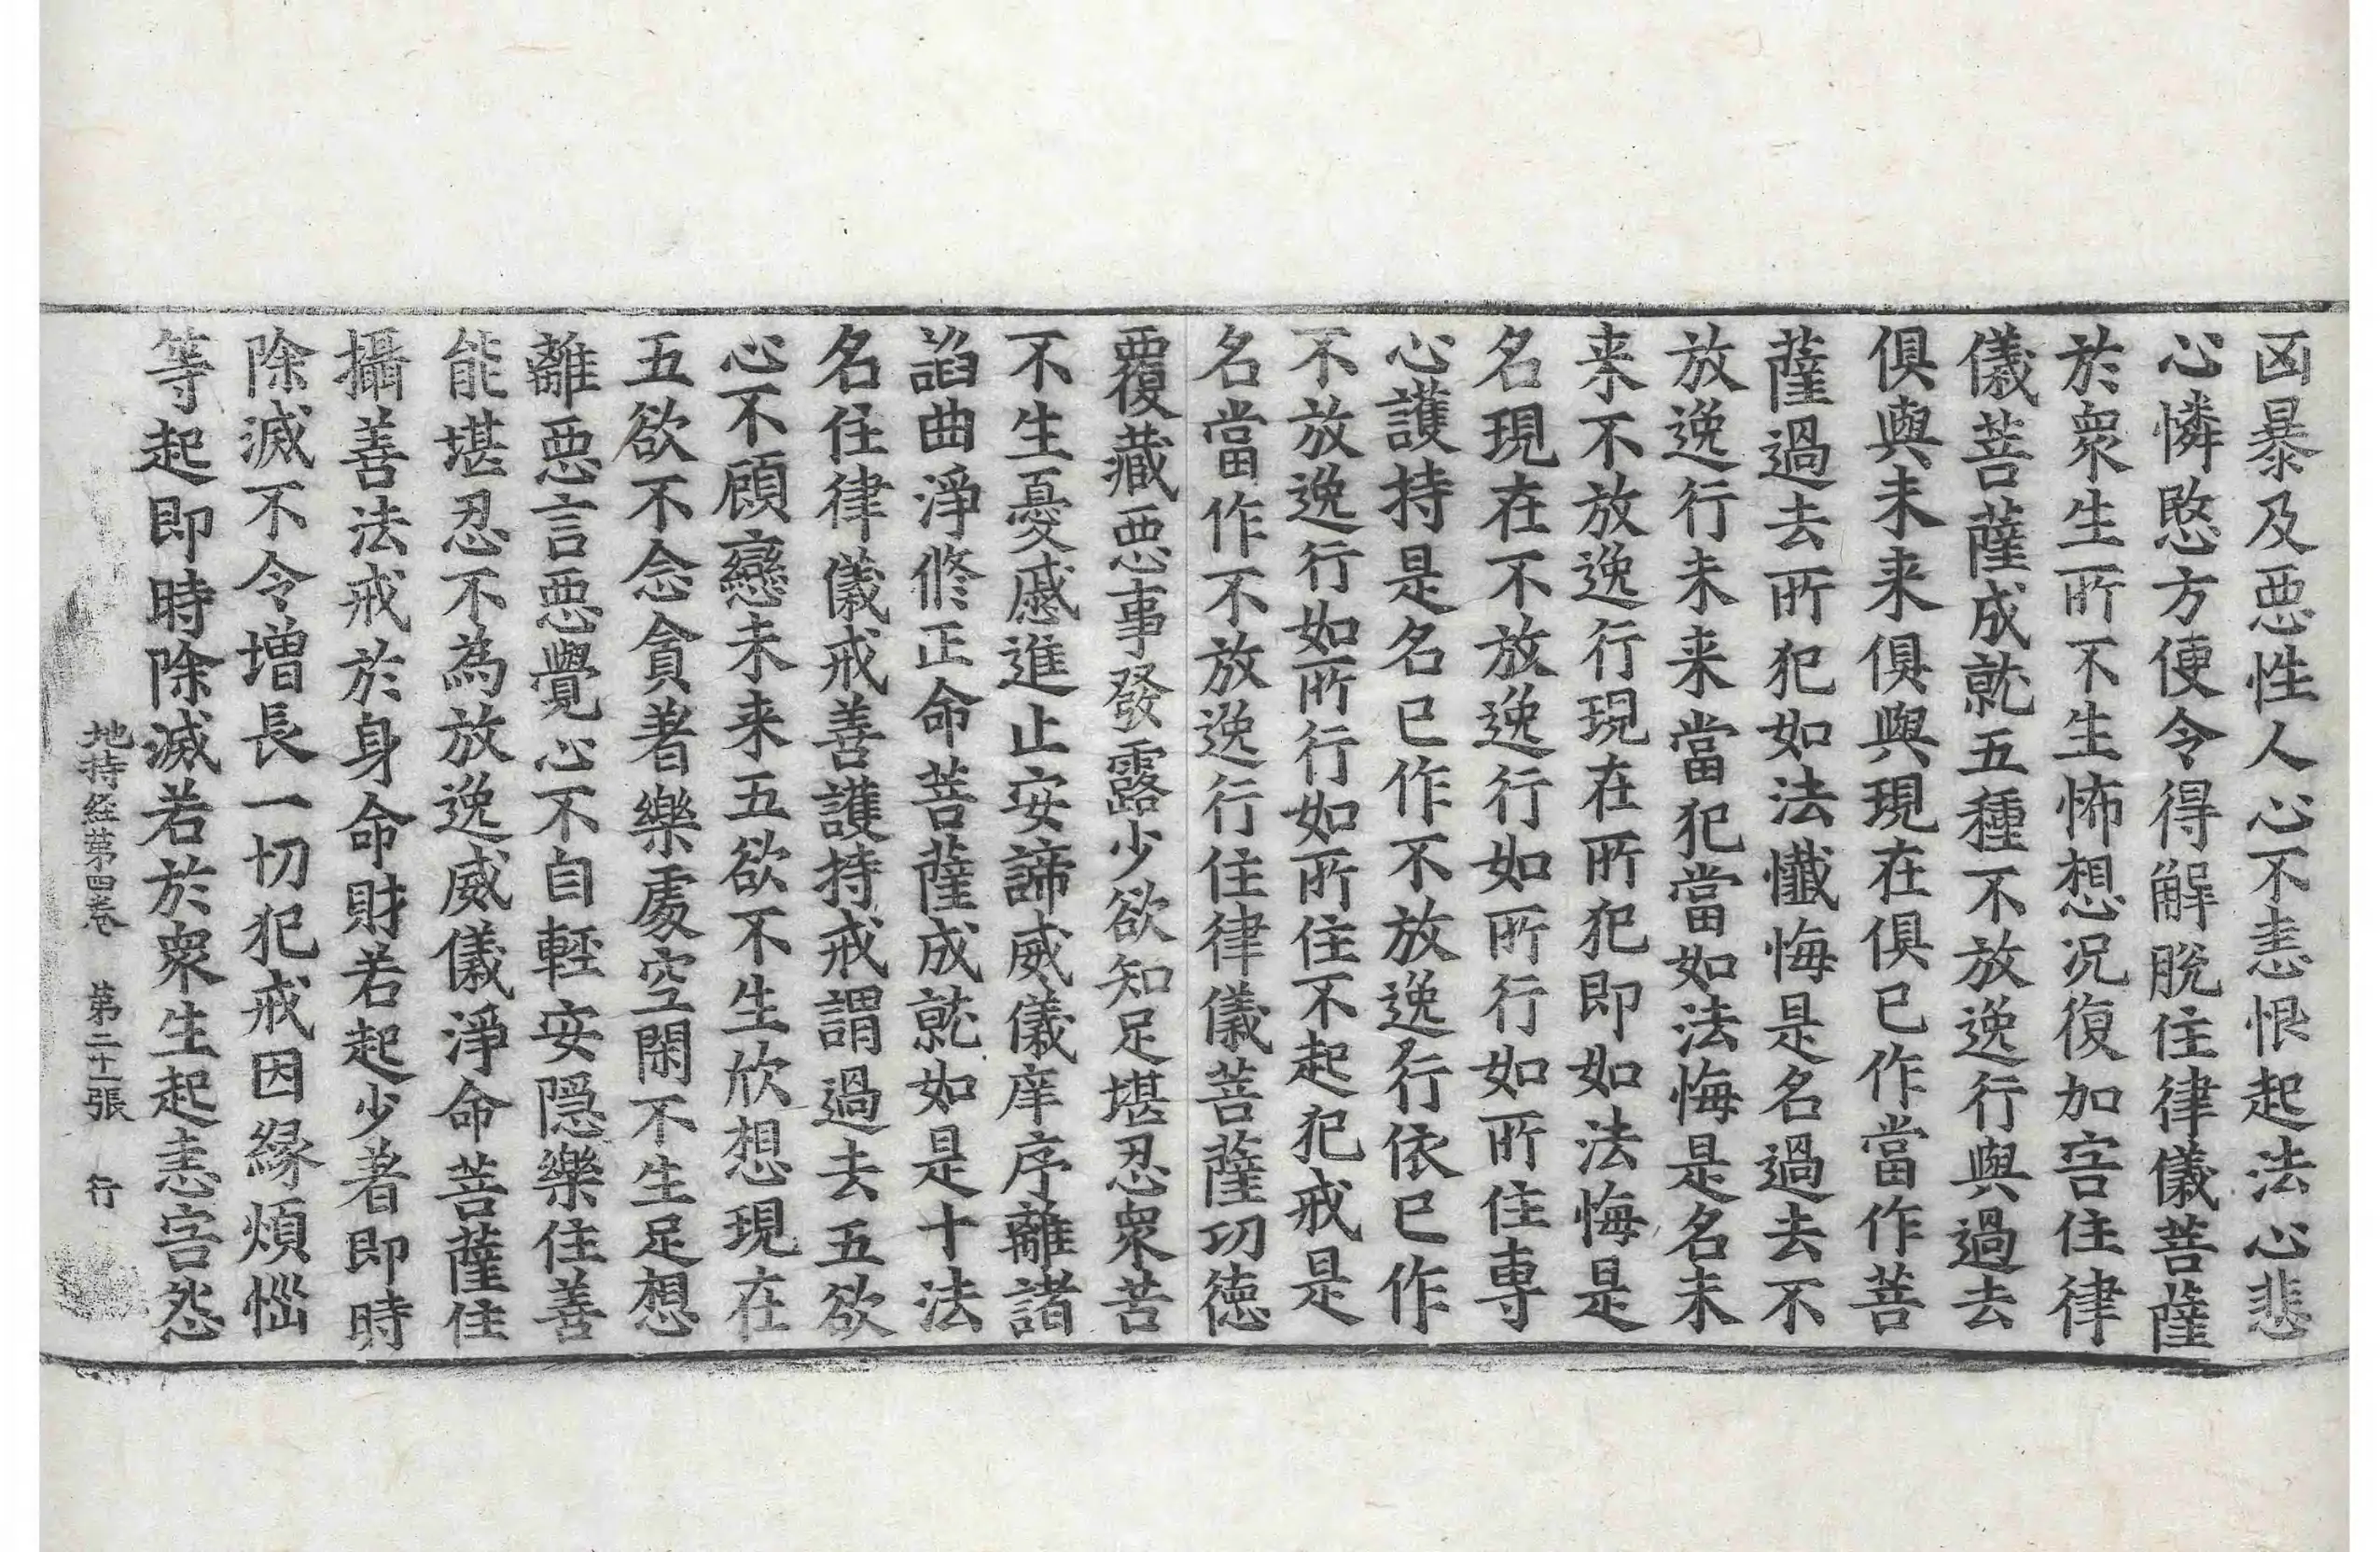 凶暴及惡性人心不恚恨起法心悲
心憐愍方便令得解脫住律儀菩薩
於衆生所不生怖想况復加害住律
儀菩薩成就五種不放逸行與過去
俱與未来俱與現在俱已作當作菩
薩過去所犯如法懺悔是名過去不
放逸行未来當犯當如法悔是名未
来不放逸行現在所犯即如法悔是
名現在不放逸行如所行如所住専
心護持是名已作不放逸行依已作
不放逸行如所行如所住不起犯戒是
名當作不放逸行住律儀菩薩功德
覆藏惡事發露少欲知足堪忍衆苦
不生憂慼進止安諦威儀庠序離諸
諂曲淨修正命菩薩成就如是十法
名住律儀戒善護持戒謂過去五欲
心不顧戀未来五欲不生欣想現在
五欲不念貪著樂處空閑不生足想
離惡言惡覺心不自輕安隱樂住善
能堪忍不為放逸威儀淨命菩薩住
攝善法戒於身命財若起少著即時
除滅不令增長一切犯戒因緣煩惱
等起即時除滅若於衆生起恚害怨
地持経第四卷　第二十一張　行